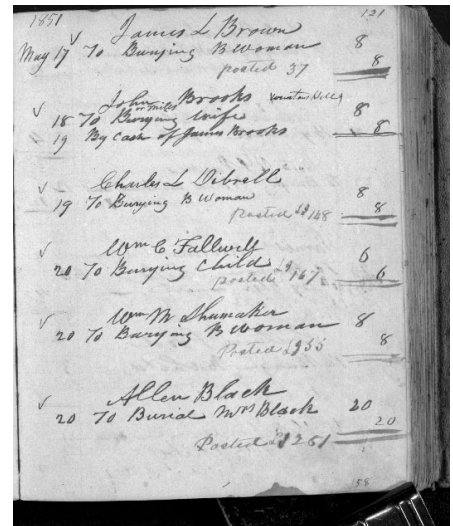 1851 121
James L Brown
May 17 To Burying B Woman 8
posted 37 8
John Brooks
or miles
18 To Burying Wife 8
19 By Cash of James Brooks 8
Charles L Dibrell
19 To Burying B Woman 8
posted 148 8
Wm C Fallwell
20 To Burying Child 6
posted 167 6
Wm M Shumaker
20 To Burying B Woman 8
Posted 255 8
Allen Black
20 To Burial Mrs Black 20
Posted 261 20
158